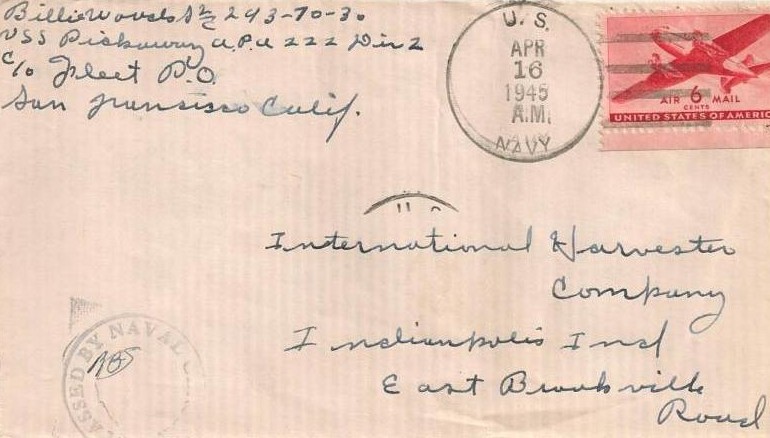 Billie Woods S2/c 293-70-30
USS Pickaway A.P.A 222 Div 2
c/o Fleet P.O.
San Francisco Calif.
U. S.
APR
16
1945
A.M.
NAVY
AIR 6 MAIL
CENTS
UNITED STATES OF AMERIC
U.S.
International Harvester
Company
Indianpolis Ind
East Brookville
Road
ASSED BY NAVAL